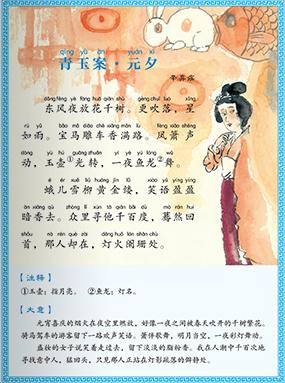 qīng yù àn yuán xī
青玉案·元夕
辛弃疾
dōng fēng yè fàng huā qiān shù gèng chuī luò xīng
东风夜放花千树。更吹落，星
rú yǔ bǎo mǎ diāo chē xiāng mǎn lù fèng xiāo shēng
如雨。宝马雕车香满路。凤箫声
dòng yù hú guāng zhuǎn yí yè yú lóng wǔ
动，玉壶①光转，一夜鱼龙②舞。
é ér xuě liǔ huáng jīn lǚ xiào yǔ yíng yíng
蛾儿雪柳黄金缕，笑语盈盈
àn xiāng qù zhòng lǐ xún tā qiān bǎi dù mò rán huí
暗香去。众里寻他千百度，蓦然回
shǒu nà rén què zài dēng huǒ lán shān chù
首，那人却在，灯火阑珊处。
【注释】
①玉壶：指月亮。 ②鱼龙：灯名。
【大意】
元宵喜庆的烟火在夜空里燃放，好像一夜之间被春天吹开的千树繁花。
骑马驾车的游客留下一路欢声笑语。箫伴歌舞，明月当空，一夜彩灯舞动。
盛妆的女子说笑着走过去，留下淡淡的脂粉香。我在人中千百次地
寻找意中人，猛回头，只见那人正站在灯影疏落的僻静处。